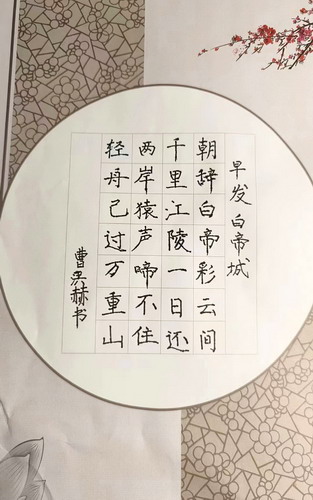 早发白帝城
朝辞白帝彩云间
千里江陵一日还
两岸猿声啼不住
轻舟已过万重山
曹昊赫书